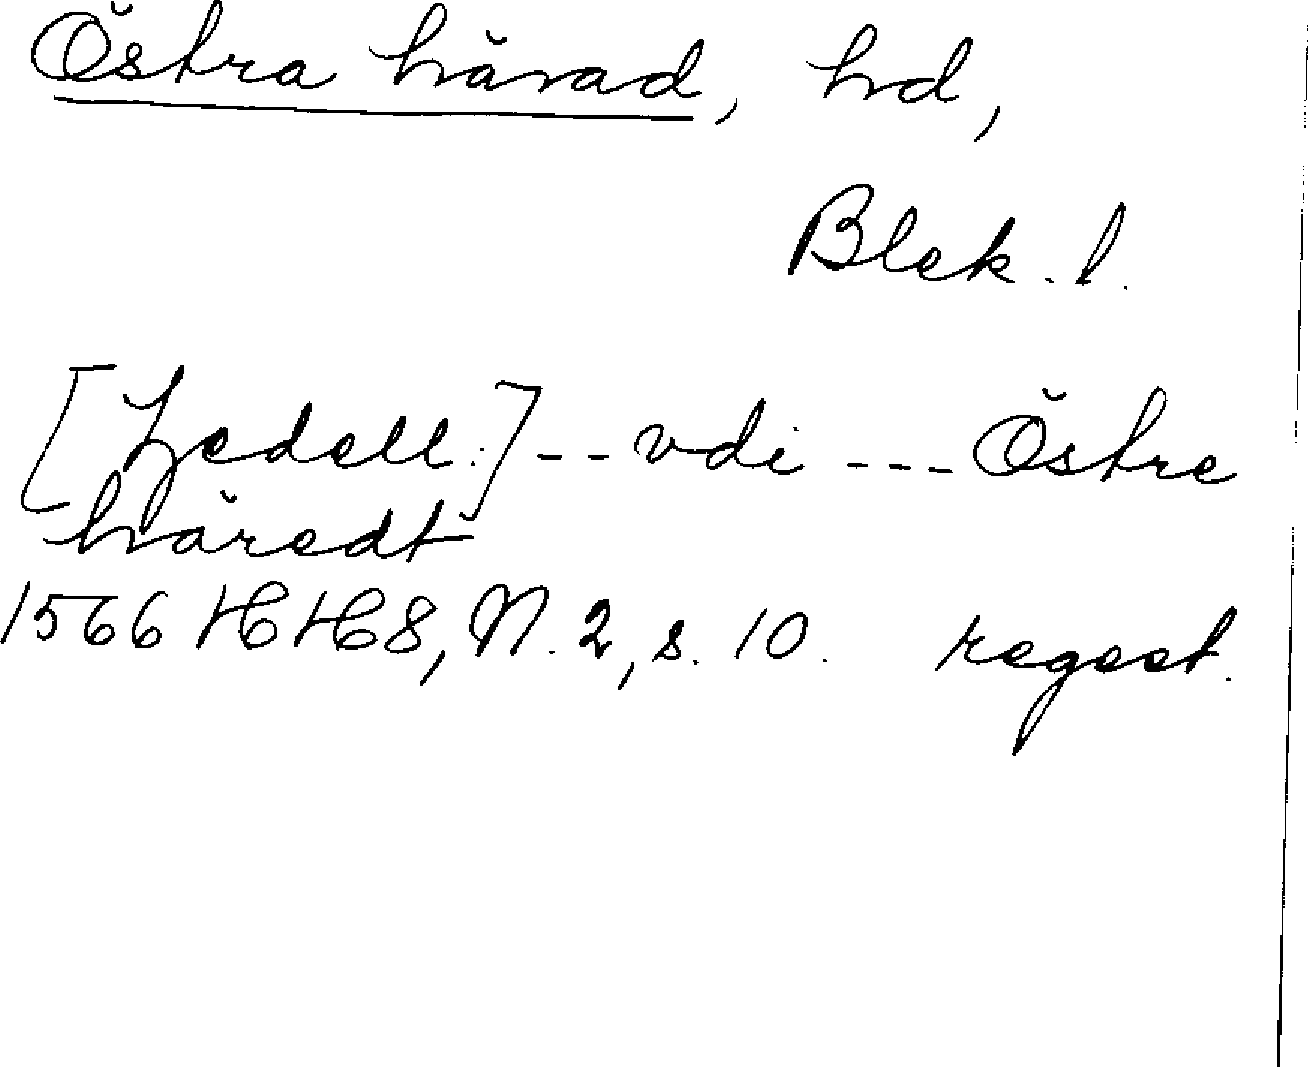 Östra härad, hd,
Blek. l.
[Ledell.] -- vdi --- Östre
häredt
1566 HH8, N. 2, s. 10. regest.